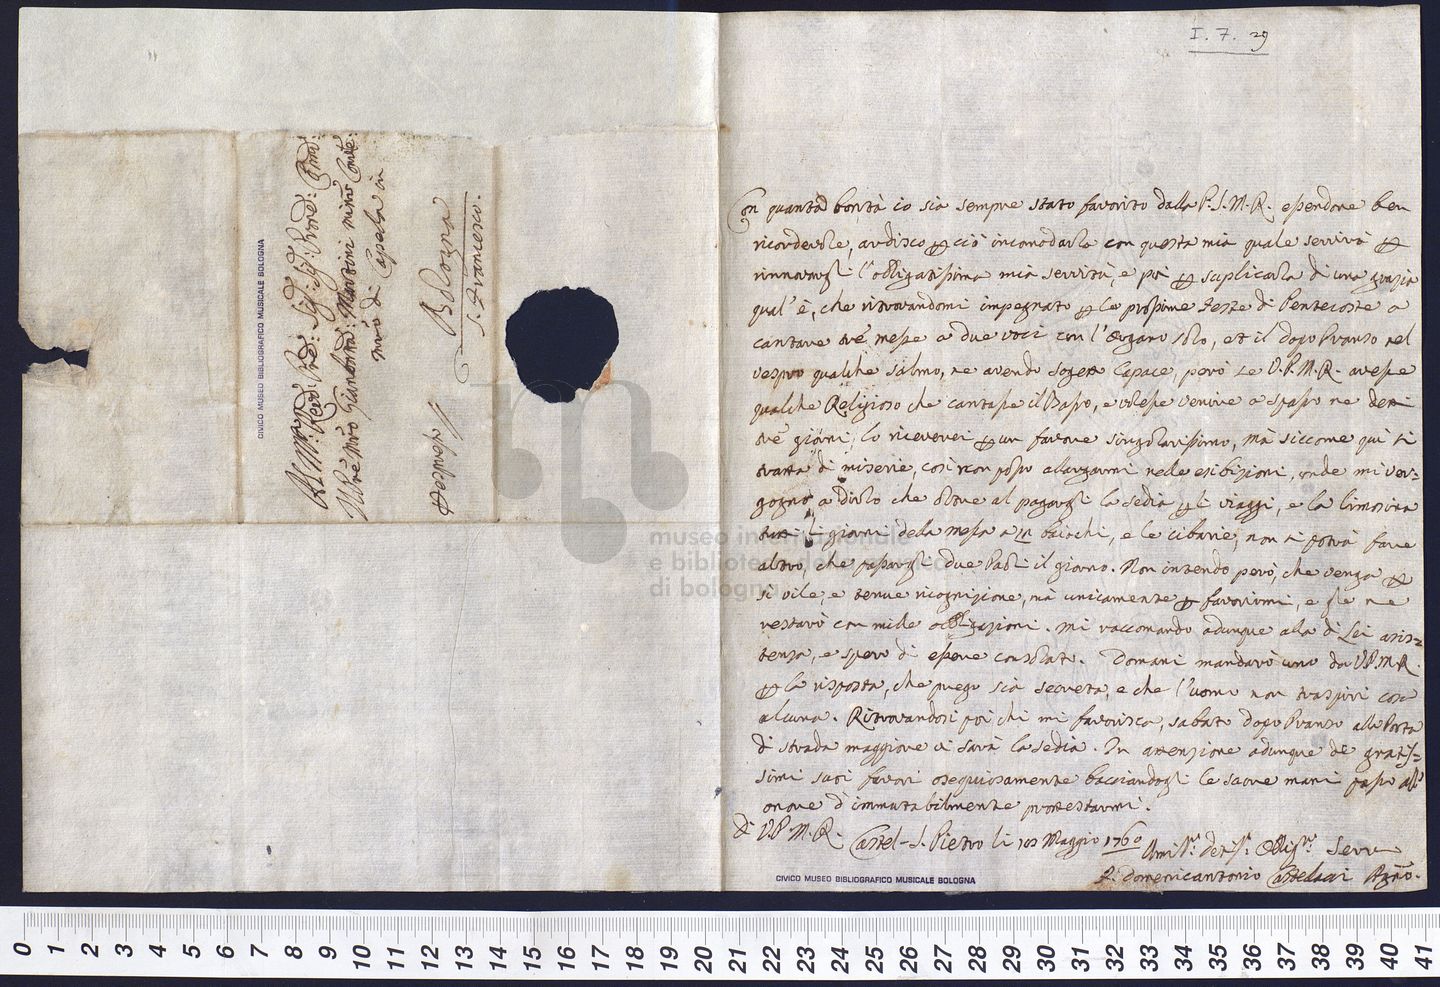 I. 7. 29
Con quanta bontà io sia sempre stato favorito dalla P. S. M. R. essendone ben
ricordevole, ardisco per ciò incomodarla con questa mia quale servirà per
rinnovargli l'obbligatissima mia servitù, e poi per suplicarla di una grazia
qual'è, che ritrovandomi impegnato per le prossime Feste di Pentecoste a
cantare trè messe a due voci con l'organo solo, et il dopo Pranzo nel
vespro qualche salmo, ne avendo sogetto Capace, però se V. P. M. R. avesse
qualche Religioso che cantasse il Basso, e volesse venire a spasso ne detti
trè giorni, lo riceverei per un favore singolarissimo, mà siccome quì si
tratta di miserie, così non posso allargarmi nelle esibizioni, onde mi ver-
gogno a dirlo che oltre al pagargli la sedia per li viaggi, e la limosina
tutti li giorni della messa a baiochi, e le cibarie, non si potrà fare
altro, che passargli due Paoli il giorno. Non intendo però, che venga per
sì vile, e tenue ricognizione, mà unicamente per favorirmi, e gle ne
restarò con mille obbligazioni. Mi raccomando adunque alla di Lei assis-
tenza, e spero di essere consolato. Domani mandarò uno da V.P.M.R.
per la risposta, che prego sia secreta, e che l'uomo non traspiri cosa
alcuna. Ritrovandosi poi chi mi favorisca, sabato dopo Pranzo alla Porta
di strada maggiore vi sarà la sedia. In attenzione adunque de gratis-
simi suoi favori ossequiosamente bacciandogli le sacre mani passo all'
onore d'immutabilmente protestarmi.
Di V.P.M.R. Castel S. Pietro li Maggio 1760
Umilis.mo Dev.mo Obblig.mo Serv.e
F. Domenicantonio
Bologna
S. Francesco.
Mro di Capela in
CIVICO MUSEO BIBLIOGRAFICO MUSICALE BOLOGNA
CIVICO MUSEO BIBLIOGRAFICO MUSICALE BOLOGNA
museo internazionale
e biblioteca della musica
di bologna
0 1 2 3 4 5 6 7 8 9 10 11 12 13 14 15 16 17 18 19 20 21 22 23 24 25 26 27 28 29 30 31 32 33 34 35 36 37 38 39 40 41